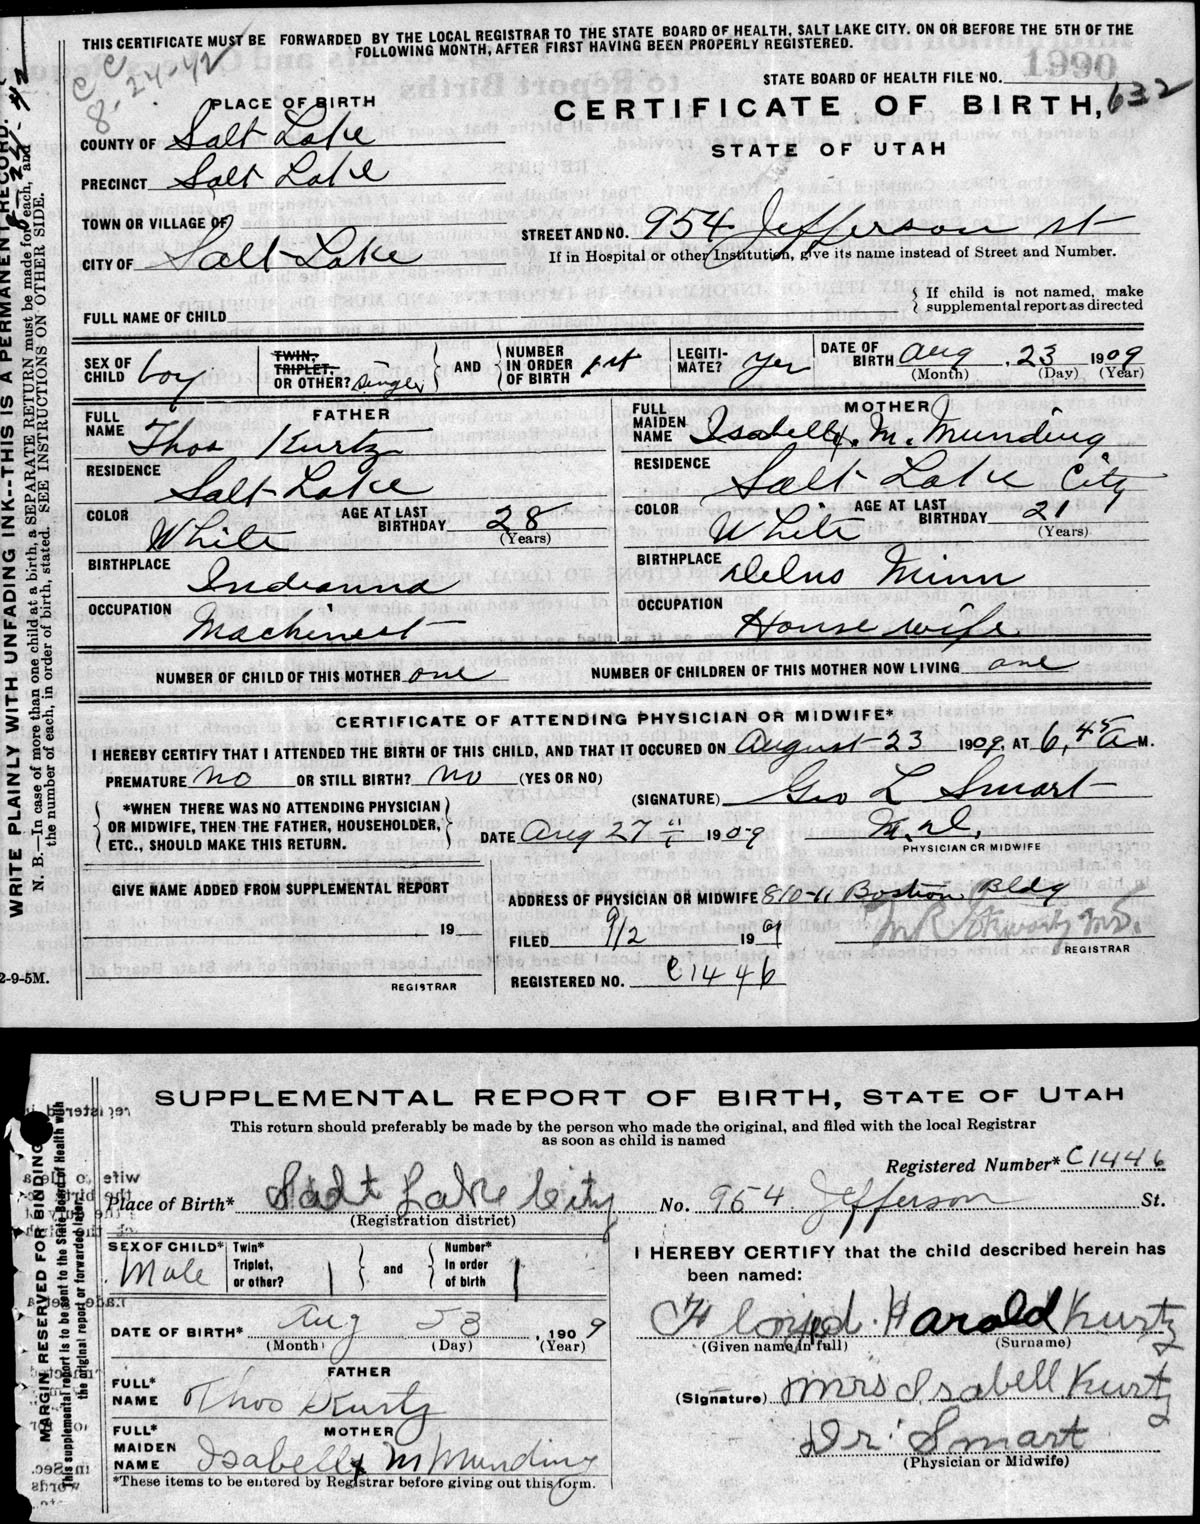 THIS CERTIFICATE MUST BE FORWARDED BY THE LOCAL REGISTRAR TO THE STATE BOARD OF HEALTH, SALT LAKE CITY. ON OR BEFORE THE 5TH OF THE
FOLLOWING MONTH, AFTER FIRST HAVING BEEN PROPERLY REGISTERED.
CC
8-24-42
STATE BOARD OF HEALTH FILE NO. 1990
PLACE OF BIRTH
CERTIFICATE OF BIRTH, 632
STATE OF UTAH
COUNTY OF Salt Lake
PRECINCT Salt Lake
TOWN OR VILLAGE OF
STREET AND NO. 954 Jefferson st
CITY OF Salt Lake
If in Hospital or other Institution, give its name instead of Street and Number.
FULL NAME OF CHILD
If child is not named, make
supplemental report as directed
SEX OF CHILD boy
TWIN, TRIPLET, OR OTHER? Single
AND NUMBER IN ORDER OF BIRTH 1st
LEGITIMATE? yes
DATE OF BIRTH Aug. 23 1909
(Month) (Day) (Year)
FATHER
FULL NAME Thos Kurtz
RESIDENCE Salt Lake
COLOR White
AGE AT LAST BIRTHDAY 28
(Years)
BIRTHPLACE Indianna
OCCUPATION Machinest
MOTHER
FULL MAIDEN NAME Isabell M. Munding
RESIDENCE Salt Lake City
COLOR White
AGE AT LAST BIRTHDAY 21
(Years)
BIRTHPLACE Minn
OCCUPATION House wife
NUMBER OF CHILD OF THIS MOTHER one
NUMBER OF CHILDREN OF THIS MOTHER NOW LIVING one
CERTIFICATE OF ATTENDING PHYSICIAN OR MIDWIFE*
I HEREBY CERTIFY THAT I ATTENDED THE BIRTH OF THIS CHILD, AND THAT IT OCCURED ON August 23 1909, AT 6,45 A M.
PREMATURE No OR STILL BIRTH? No (YES OR NO)
*WHEN THERE WAS NO ATTENDING PHYSICIAN
OR MIDWIFE, THEN THE FATHER, HOUSEHOLDER,
ETC., SHOULD MAKE THIS RETURN.
(SIGNATURE) Geo L Smart
DATE Aug 27 1909
M.D.
PHYSICIAN OR MIDWIFE
GIVE NAME ADDED FROM SUPPLEMENTAL REPORT
19
REGISTRAR
ADDRESS OF PHYSICIAN OR MIDWIFE 810-11 Boston Bldg
FILED 9/2 1909
REGISTRAR
REGISTERED NO. C1446
WRITE PLAINLY WITH UNFADING INK--THIS IS A PERMANENT RECORD.
N. B.—In case of more than one child at a birth, a SEPARATE RETURN must be made for each, and
the number of each, in order of birth, stated. SEE INSTRUCTIONS ON OTHER SIDE.
2-9-5M.
SUPPLEMENTAL REPORT OF BIRTH, STATE OF UTAH
This return should preferably be made by the person who made the original, and filed with the local Registrar
as soon as child is named
Registered Number* C1446
Place of Birth* Salt Lake City
(Registration district)
No. 954 Jefferson St.
SEX OF CHILD* Male
Twin* Triplet, or other?
and Number* In order of birth
I HEREBY CERTIFY that the child described herein has
been named:
DATE OF BIRTH* Aug 23, 1909
(Month) (Day) (Year)
Harold Kurtz
(Given name in full) (Surname)
FATHER
FULL* NAME Thos Kurtz
(Signature) Mrs Isabell Kurtz
MOTHER
FULL* MAIDEN NAME Isabell M Munding
Dr. Smart
(Physician or Midwife)
*These items to be entered by Registrar before giving out this form.
MARGIN RESERVED FOR BINDING
This supplemental report is to be sent to the State Board of Health with
the original report or forwarded later.